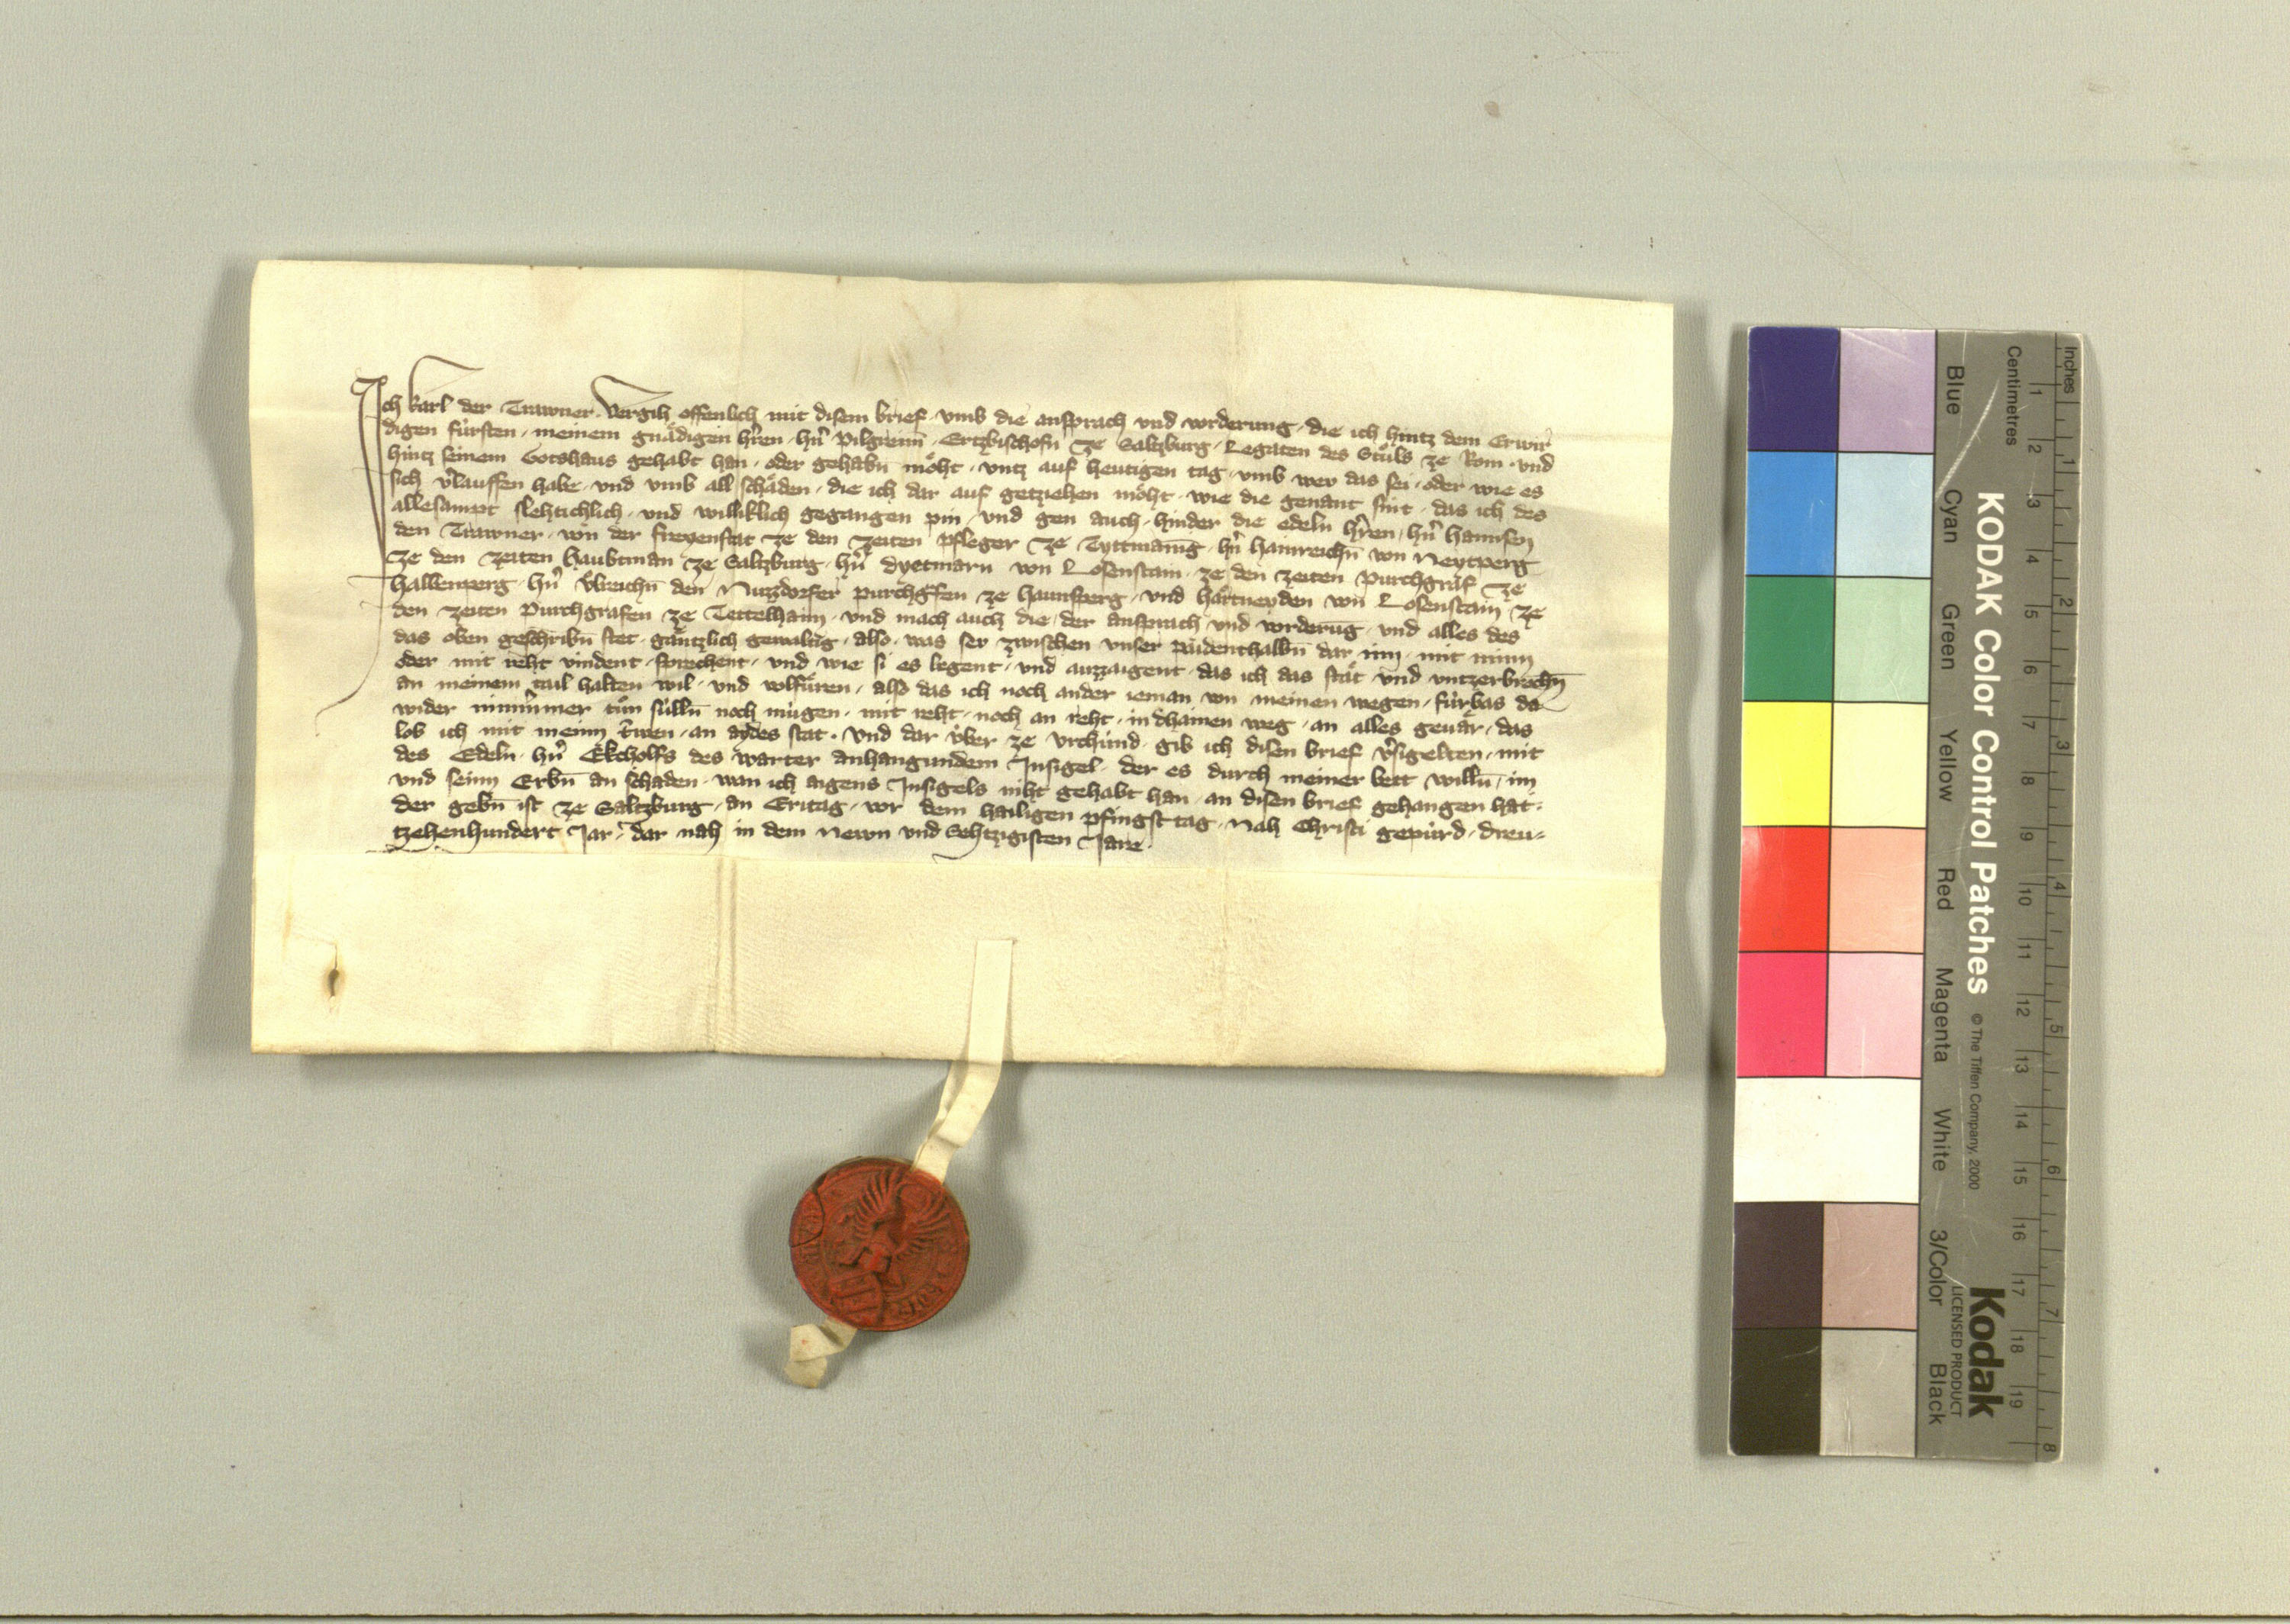 Ich karl der Trawner. Vergih offenlich mit disem brief. vmb die ansprach vnd vorderung. die ich hintz dem Erwir
digen fürsten. meinem gnädigen hr̄en. hn̄ Pilgreim. Ertzbischofn ze Saltzburg. Legaten des Stůls ze Rom. vnd
hintz seinem Gotshaus gehabt han. oder gehabn̄ möht. vntz auf heutigen tag. vmb wev das sei. oder wie es
sich v̄lauffen habe. vnd vmb all schäden. die ich dar auf getziehen möht. wie die genant sint. das ich des
allesampt slehtichlich. vnd williklich gegangen pin. vnd gen auch. hinder die edeln hr̄en. hn̄ hannsen
den Trawner. von der freyenstat ze den zeiten Pfleger ze Tyttmaning. hn̄ hainreichn̄ von Neytperg
ze den zeiten haubtman ze Saltzburg. hn̄ dyetmarn von Losenstain. ze den zeiten Purchgraf ze
hallenperg. hn̄ Vlreichn̄ den Nuzzdorfer purchgrafen ze haunsperg. vnd härtneyden von Losenstain ze
den zeiten Purchgrafen ze Tettelhaim. vnd mach auch die. der ansprach vnd vorderūg. vnd alles des
das oben geschribn̄ stet. gäntzlich gewaltig. also. was sev zwischen vnser paidenthalbn̄ dar inn. mit minn
oder mit reht vindent. sprechent. vnd wie si es legent. vnd auzzaigent. das ich das stät vnd vntzerbrochn̄
an meinem tail halten wil. vnd volfüren. also das ich noch ander ieman von meinen wegen. fürbas da
wider nimmer tůn sülln̄ noch mügen. mit reht. noch an reht. in dhainen weg. an alles geuär. das
lob ich mit meinn tr̄wen. an aydes stat. Vnd dar vber ze vrchünd. gib ich disen brief v̄sigelten. mit
des Edeln. hn̄ Ekcholfs des warter anhangundem Insigel. der es durch meiner bett willn̄. im
vnd seinn Erbn̄ an schaden. wan ich aigens Insigels niht gehabt han. an disen brief gehangen hat.
der gebn̄ ist ze Saltzburg. an Eritag. vor dem hailigen pfingst tag. Nah Christi gepürd. dreu-
tzehenhundert Jar. dar nah in dem Newn vnd Sehtzigisten Jare.
Inches
Centimetres
1 2 3 4 5 6 7 8
1 2 3 4 5 6 7 8 9 10 11 12 13 14 15 16 17 18 19
KODAK Color Control Patches
© The Tiffen Company, 2000
Kodak
LICENSED PRODUCT
Blue
Cyan
Green
Yellow
Red
Magenta
White
3/Color
Black